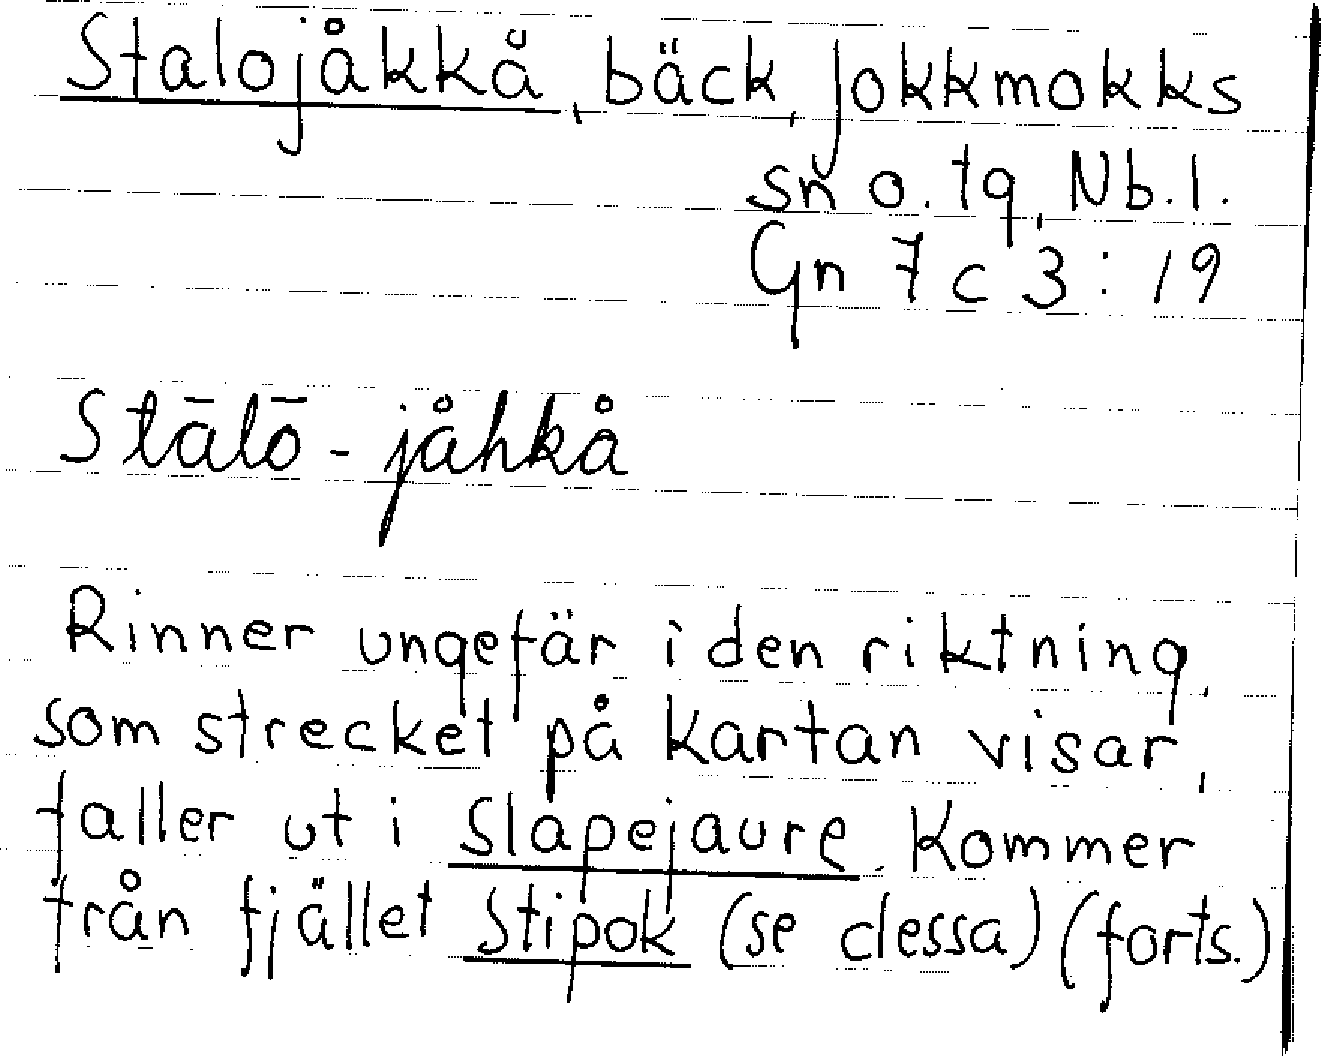 Stalojåkkå, bäck, Jokkmokks
sn o. tg, Nb.l.
Gn 7 c 3 : 19
Stālō - jåhkå
Rinner ungefär i den riktning,
som strecket på kartan visar,
faller ut i Slåpejaure. Kommer
från fjället Stipok (se dessa) (forts.)